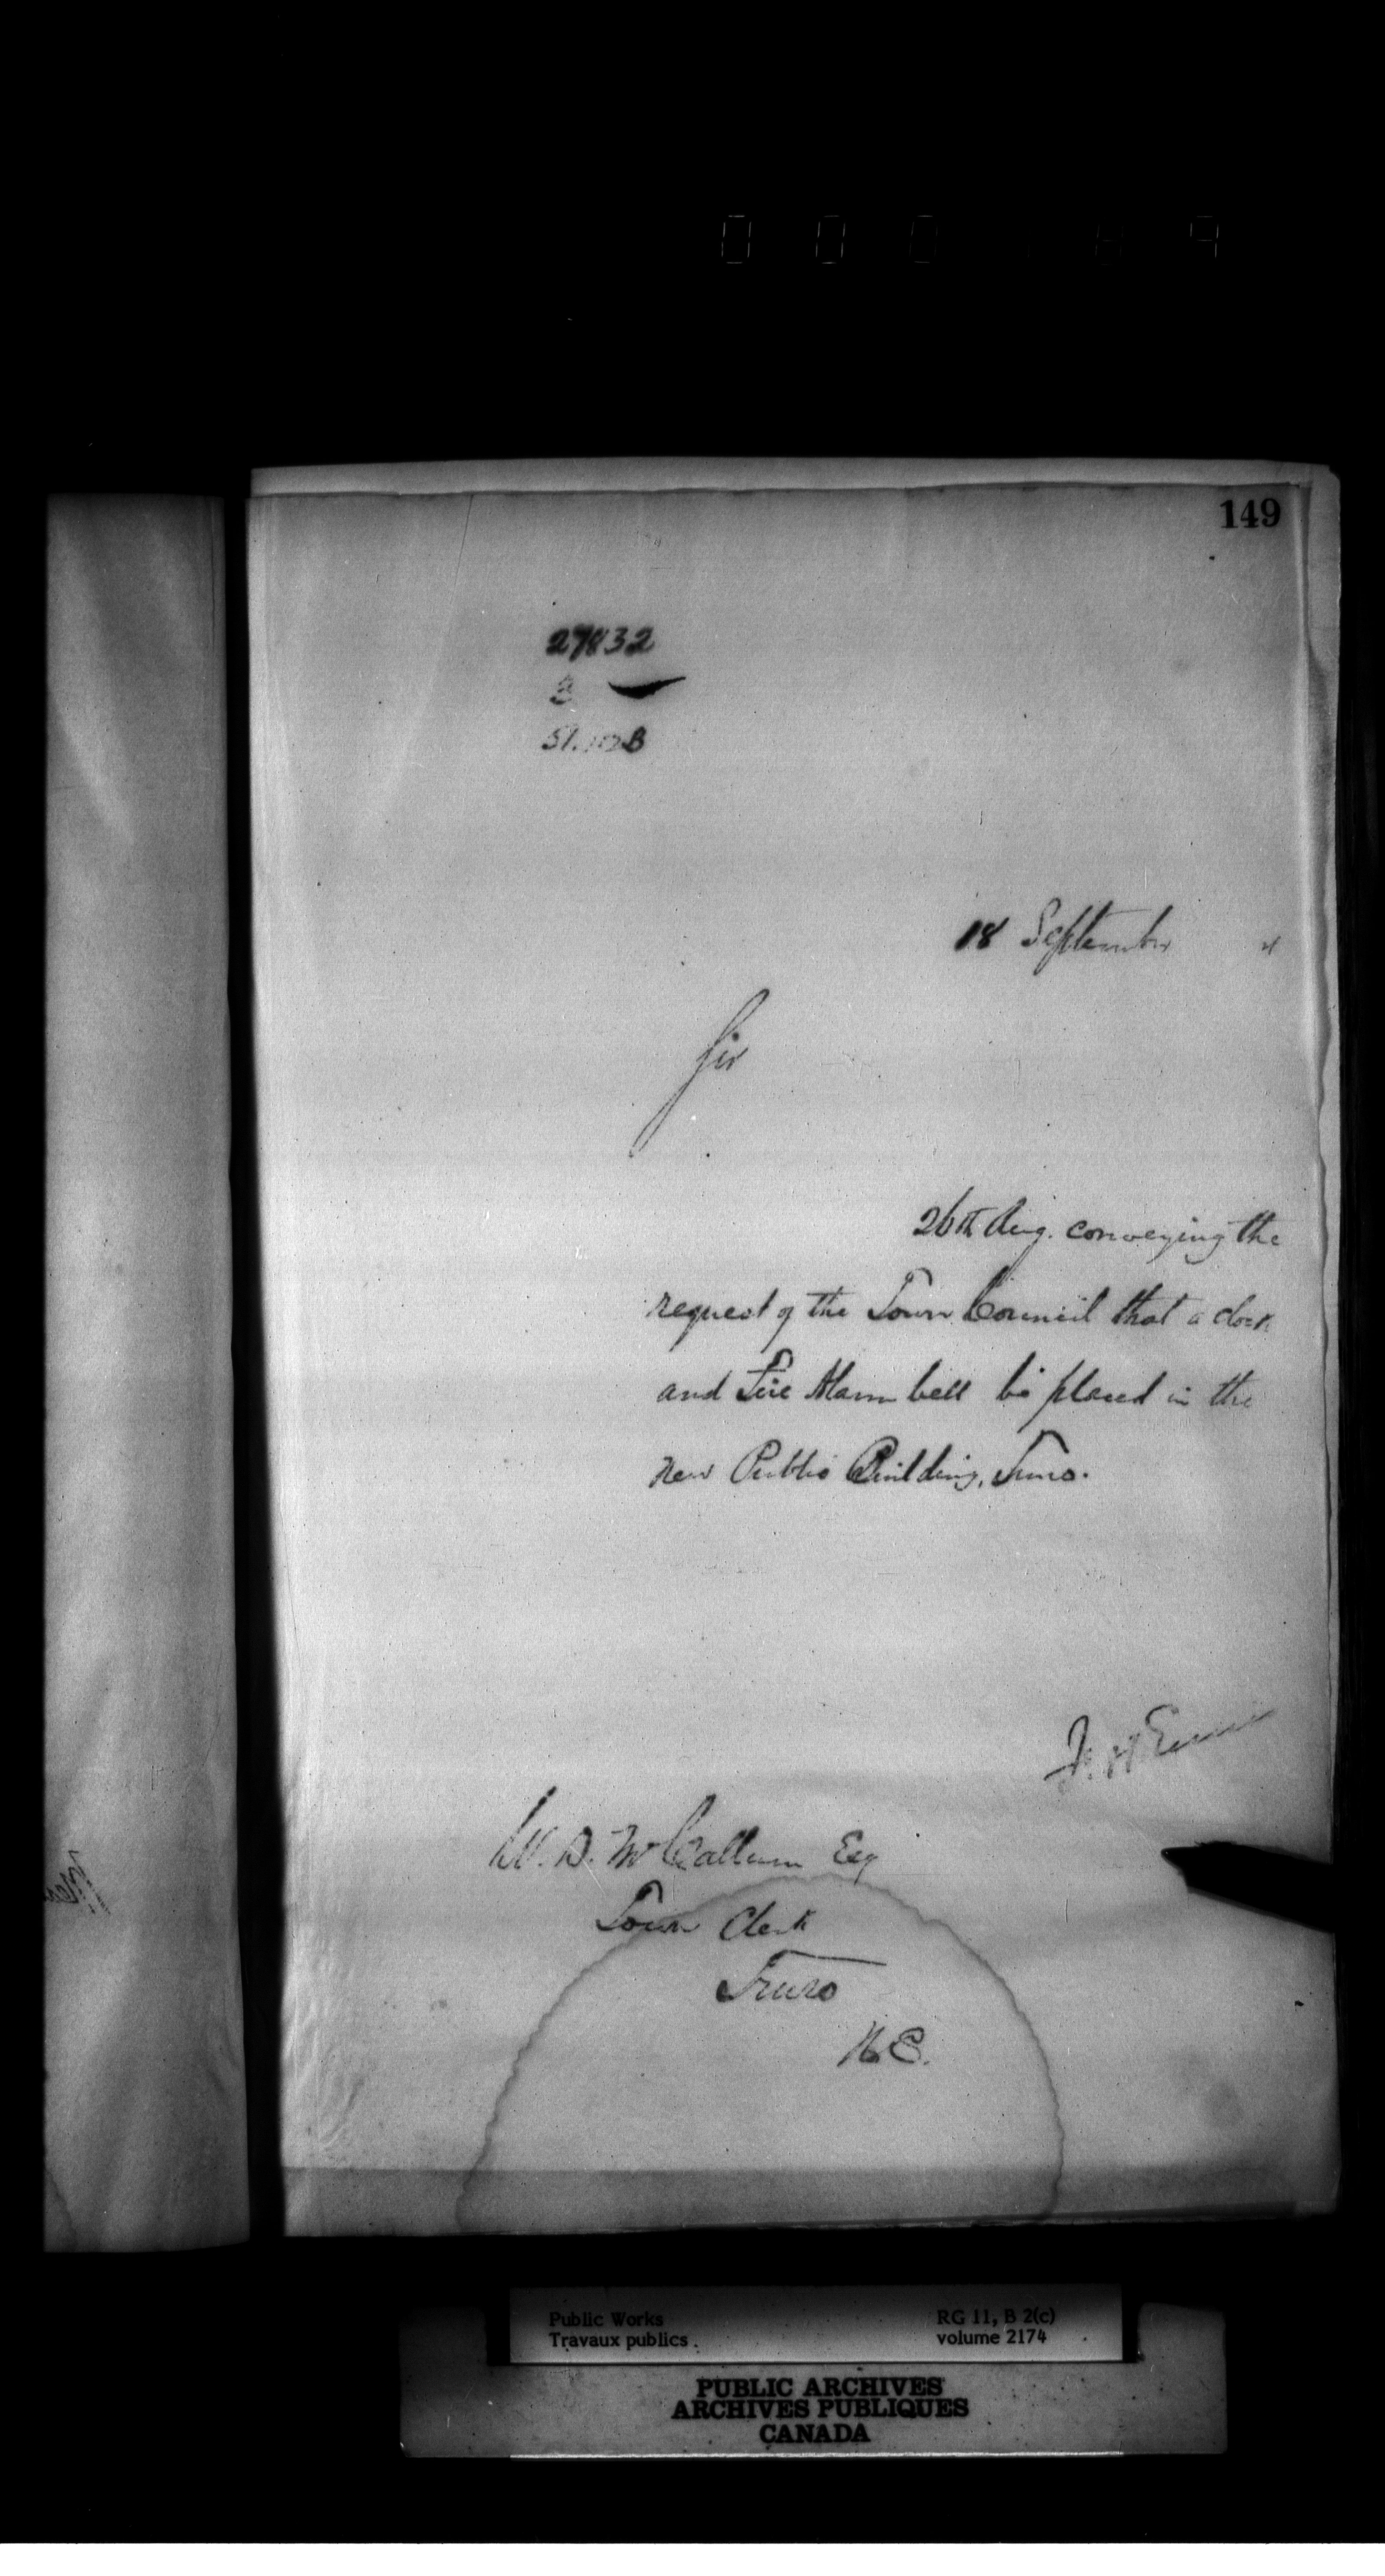 149
27832
18 September
Sir
26th Aug. conveying the
request of the Town Council that a clock
and Fire Alarm bell be placed in the
new Public Building, Truro.
W. D. McCallum Esq
Town Clerk
Truro
N.S.
Public Works
Travaux publics
RG 11, B 2(c)
volume 2174
PUBLIC ARCHIVES
ARCHIVES PUBLIQUES
CANADA